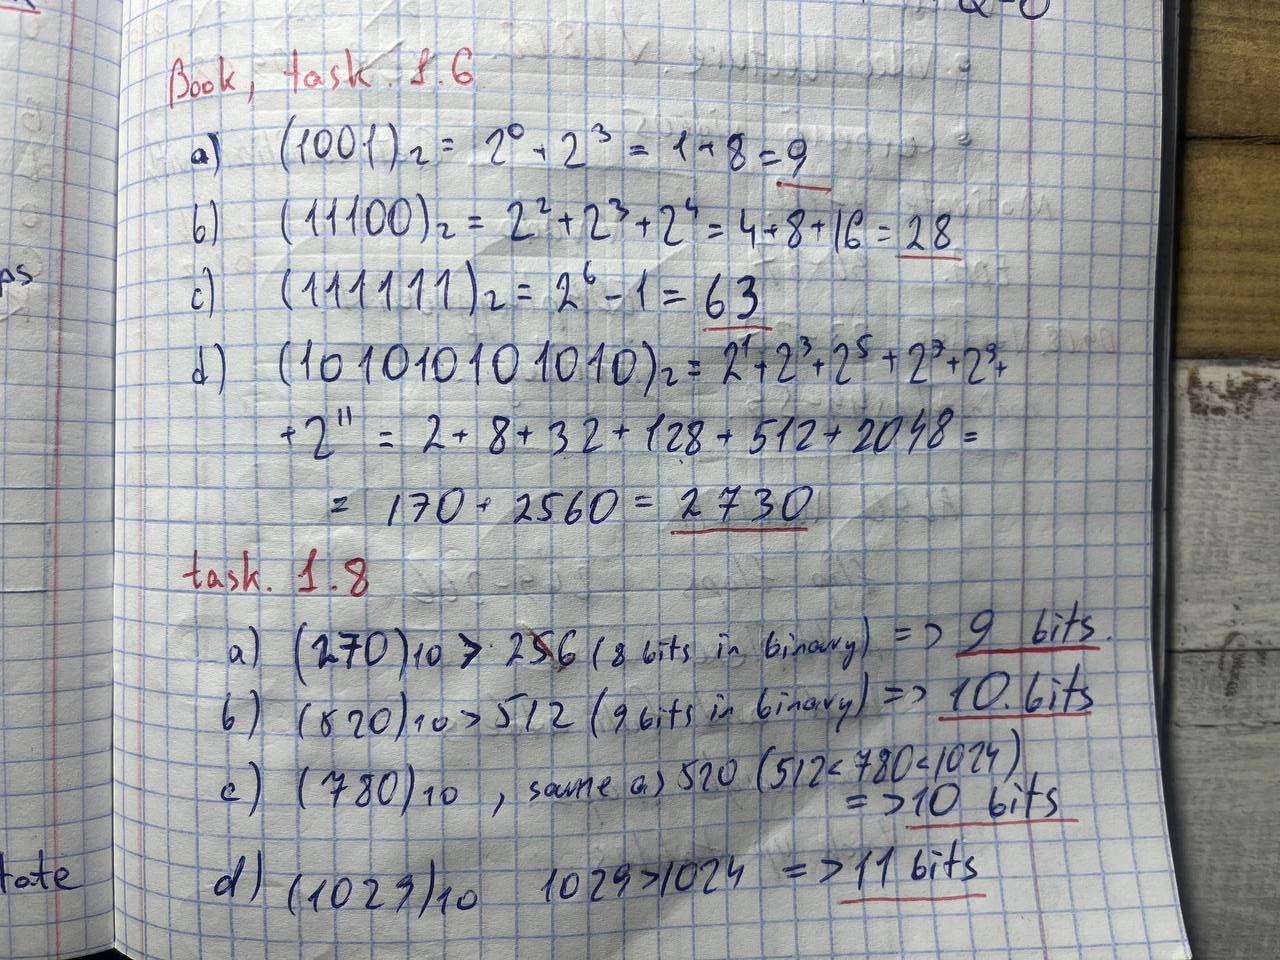 Book, task. 1.6
a) (1001)₂ = 2⁰ + 2³ = 1+8 = 9
b) (11100)₂ = 2² + 2³ + 2⁴ = 4+8+16 = 28
c) (111111)₂ = 2⁶ - 1 = 63
d) (101010101010)₂ = 2¹+2³+2⁵+2⁷+2⁹+
+2¹¹ = 2+8+32+128+512+2048 =
= 170 + 2560 = 2730
task. 1.8
a) (270)10 > 256 (8 bits in binary) => 9 bits.
b) (520)10 > 512 (9 bits in binary) => 10. bits
c) (780)10, same a) 520 (512<780<1024)
=> 10 bits
d) (1029)10 1029>1024 => 11 bits
ps
tate